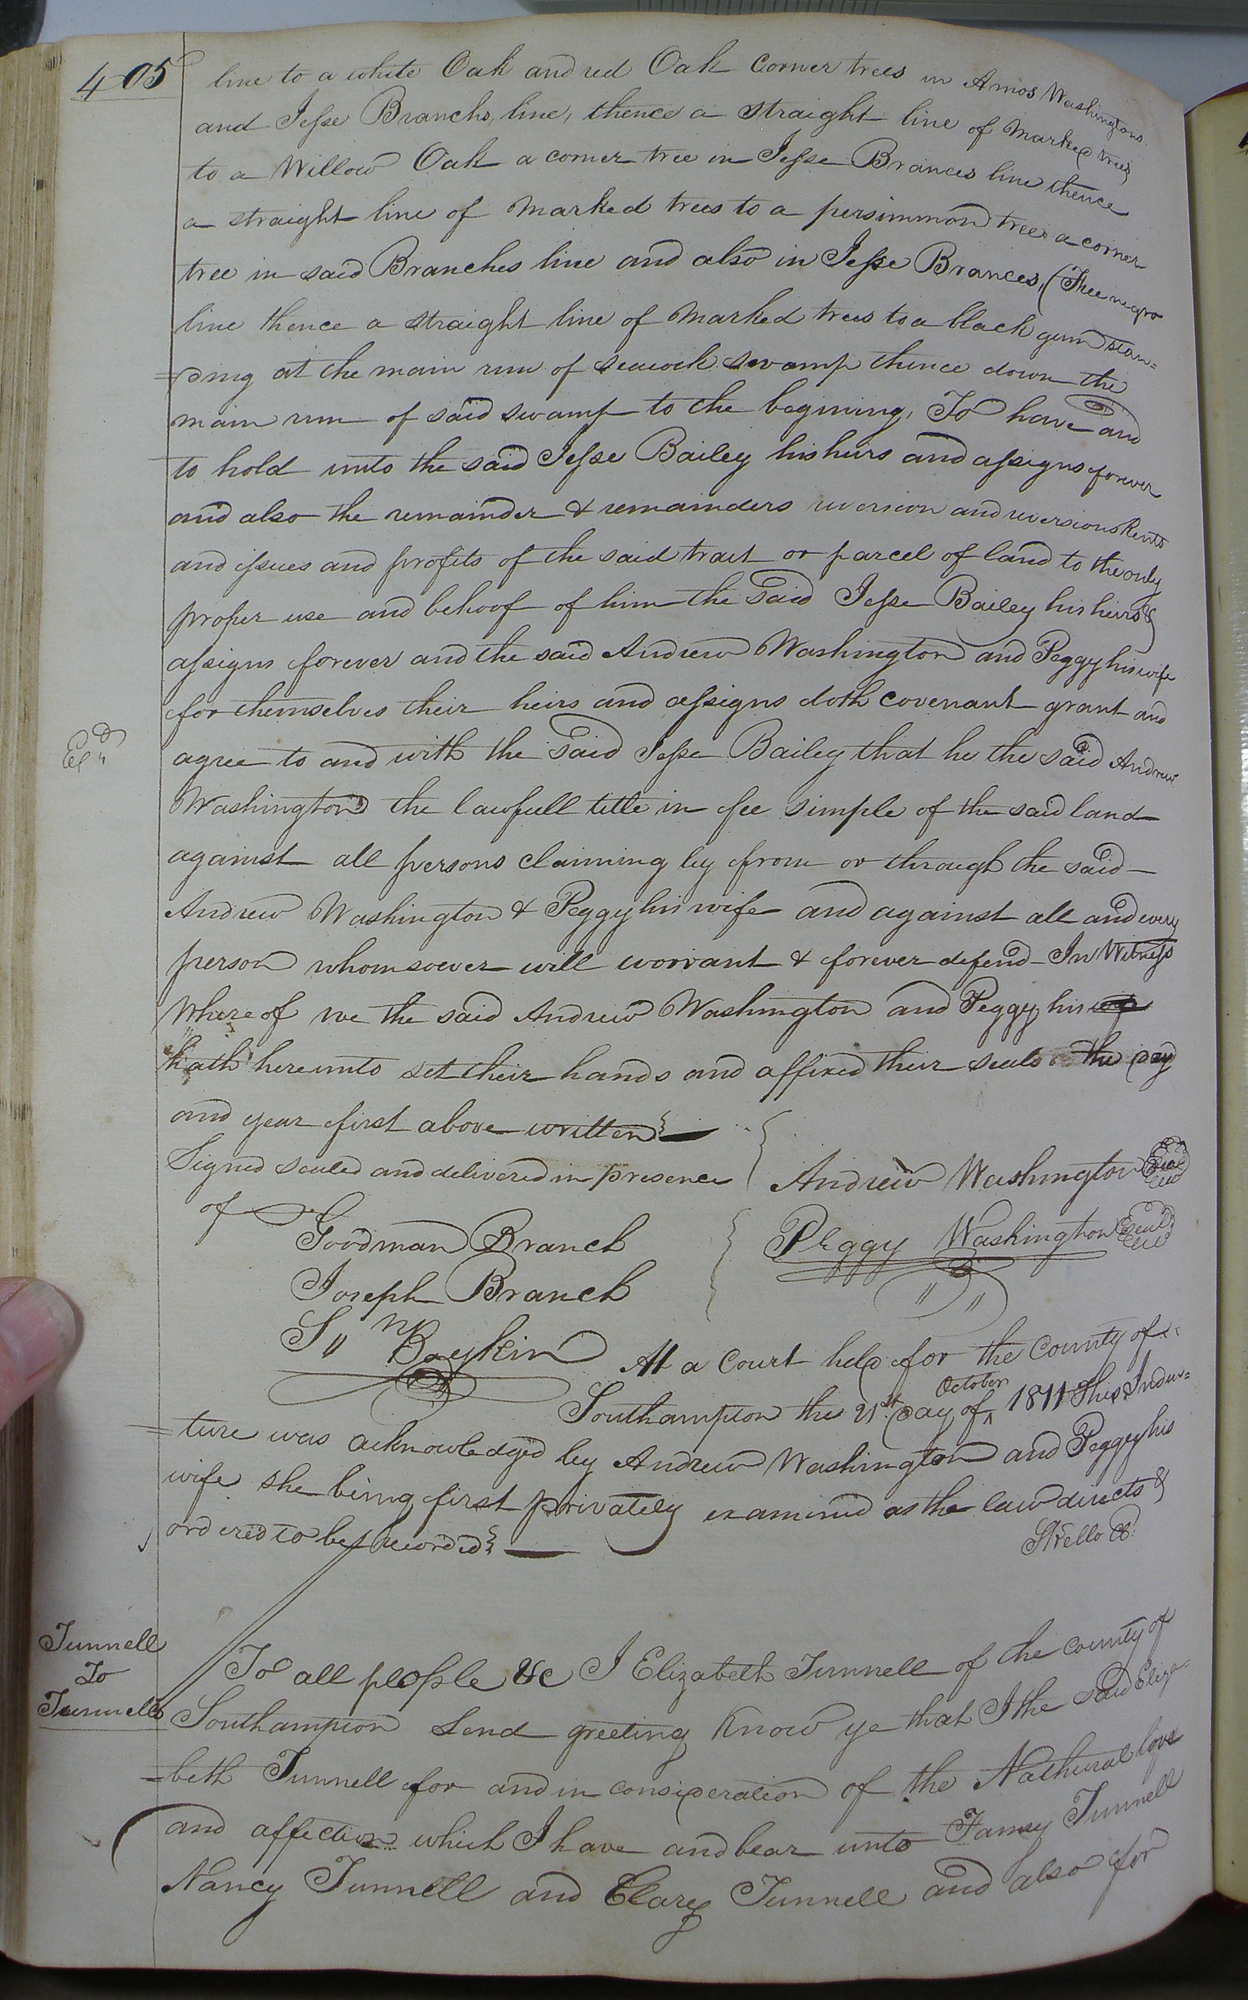 405
line to a white Oak and red Oak Corner trees in Amos Washingtons
and Jesse Branchs, line, thence a straight line of Marked trees
to a Willow Oak a corner tree in Jesse Brances line thence
a straight line of Marked trees to a persimmon tree a corner
tree in said Branches line and also in Jesse Brances, (Free negro
line thence a straight line of Marked trees to a black gum stan=
=ding at the main run of seacock swamp thence down the
main run of said swamp to the begining, To have and
to hold unto the said Jesse Bailey his heirs and assigns forever
and also the remainder & remainders reversion and reversions Rents
and issues and profits of the said tract or parcel of land to the only
proper use and behoof of him the said Jesse Bailey his heirs &
assigns forever and the said Andrew Washington and Peggy his wife
for themselves their heirs and assigns doth covenant grant and
agree to and with the said Jesse Bailey that he the said Andrew
Washington the lawfull title in fee simple of the said land
against all persons claiming by from or through the said
Andrew Washington & Peggy his wife and against all and every
person whomsoever will worrant & forever defend In Witness
Where of we the said Andrew Washington and Peggy his wife
hath hereunto set their hands and affixed their seals the day
and year first above written
Signed sealed and delivered in presence
of
Andrew Washington Seal
Goodman Branch
Peggy Washington Seal
Joseph Branch
S,, Boykin
At a Court held for the County of
Southampton the 21st day of October 1811 This Inden=
=ture was acknowledged by Andrew Washington and Peggy his
wife she being first privately examined as the law directs &
ordered to be recorded
Ex'd
Tunnell
To
Tunnell
To all people &c I Elizabeth Tunnell of the county of
Southampton Send greeting Know ye that I the said Eliza=
=beth Tunnell for and in consideration of the Nathural love
and affection which I have and bear unto Tunnell
Nancy Tunnell and Clary Tunnell and also for